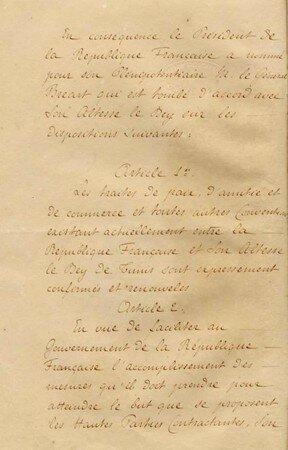 En consequence le President de
la République Française a nommé
pour son Plenipotentiaire M. le Général
Breart qui est tombé d'accord avec
Son Altesse le Bey sur les
dispositions suivantes :
Article 1er.
Les traités de paix, d'amitié et
de commerce et toutes autres Conventions
existant actuellement entre la
République Française et Son Altesse
le Bey de Tunis sont expressement
confirmés et renouvelés
Article 2.
En vue de faciliter au
Gouvernement de la République
Française l'accomplissement des
mesures qu'il doit prendre pour
atteindre le but que se proposent
les Hautes Parties Contractantes, Son